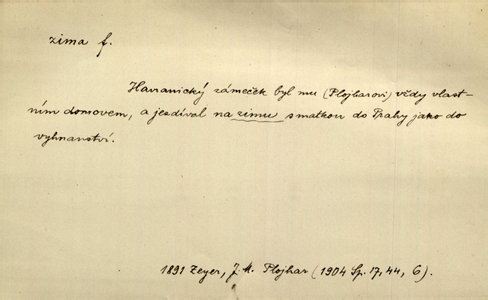 zima f.
Havranický zámeček byl mu (Plojharovi) vždy vlast-
ním domovem, a jezdíval na zimu s matkou do Prahy jako do
vyhnanství.
1891 Zeyer, J. M. Plojhar (1904 Sp. 17, 44, 6).